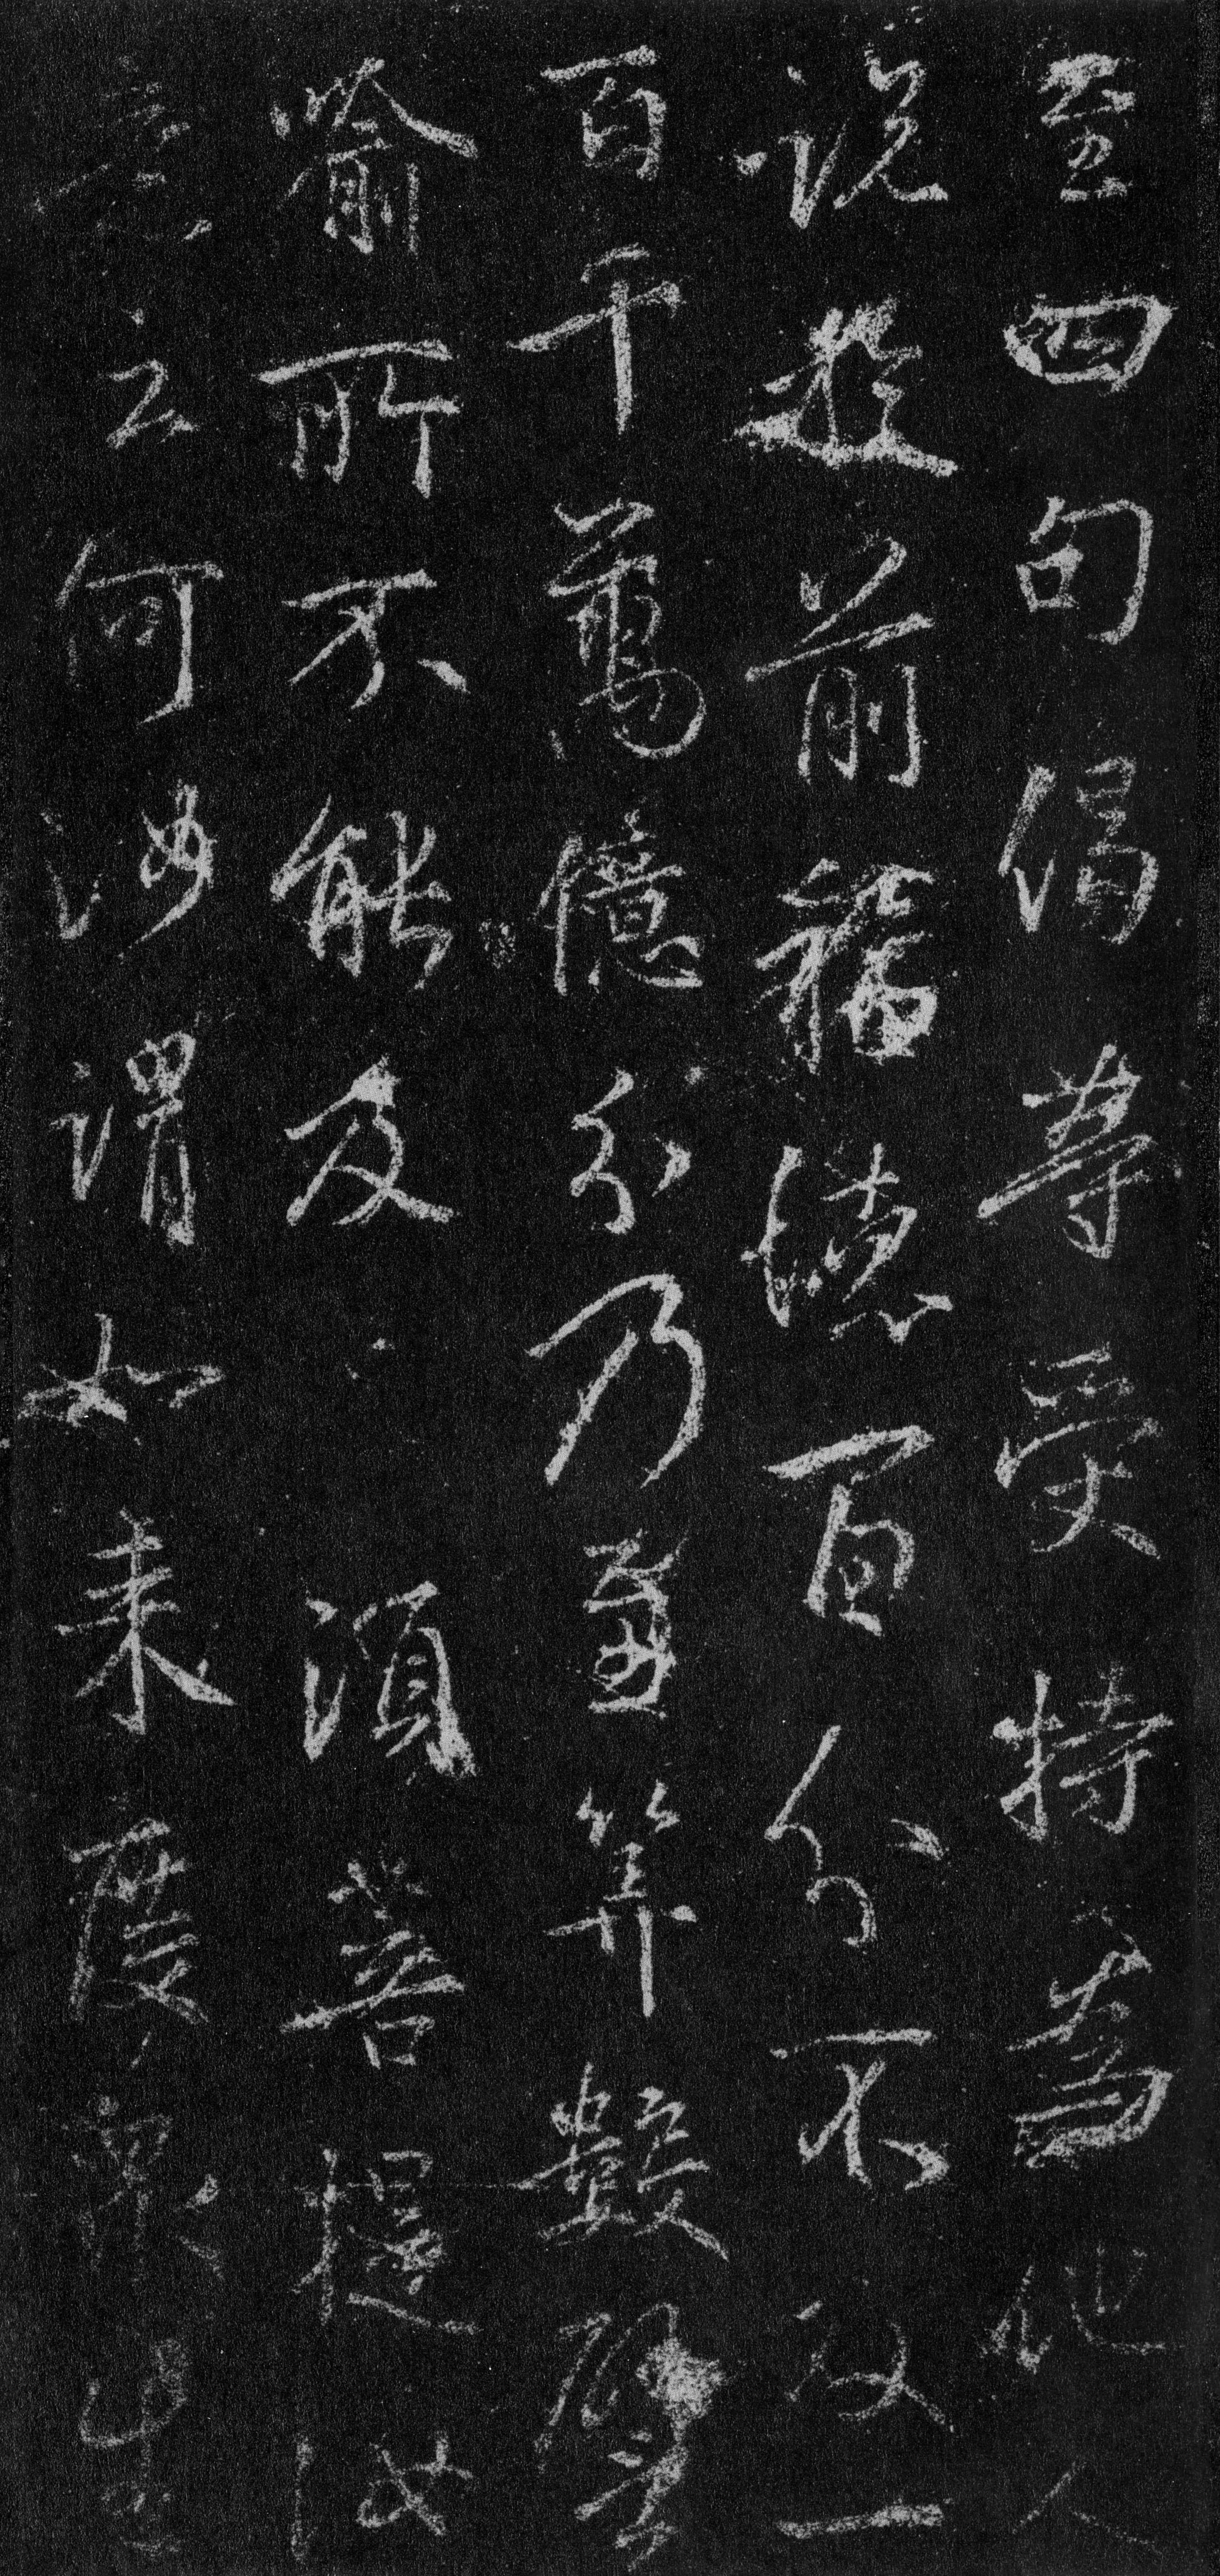 至四句偈等受持為他人
說於前福德百分不及一
百千萬億分乃至算數譬
喻所不能及 須菩提於
意云何汝謂如來度眾生